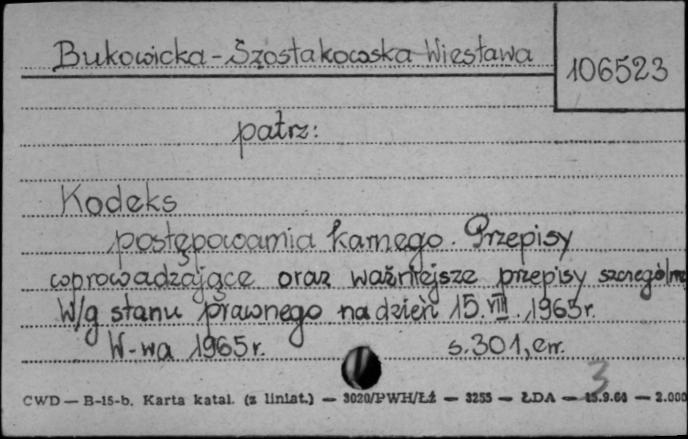 Bukowicka-Szostakowska Wiesława
106523
patrz:
Kodeks
postępowania karnego. Przepisy
wprowadzające oraz ważniejsze przepisy szczególne
W/g stanu prawnego na dzień 15.VIII.1965r.
W-wa 1965r. s.301,err.
3
CWD — B-15-b. Karta katal. (z liniat.) — 3020/PWH/Łź — 3255 — ŁDA — 15.9.64 — 2.000